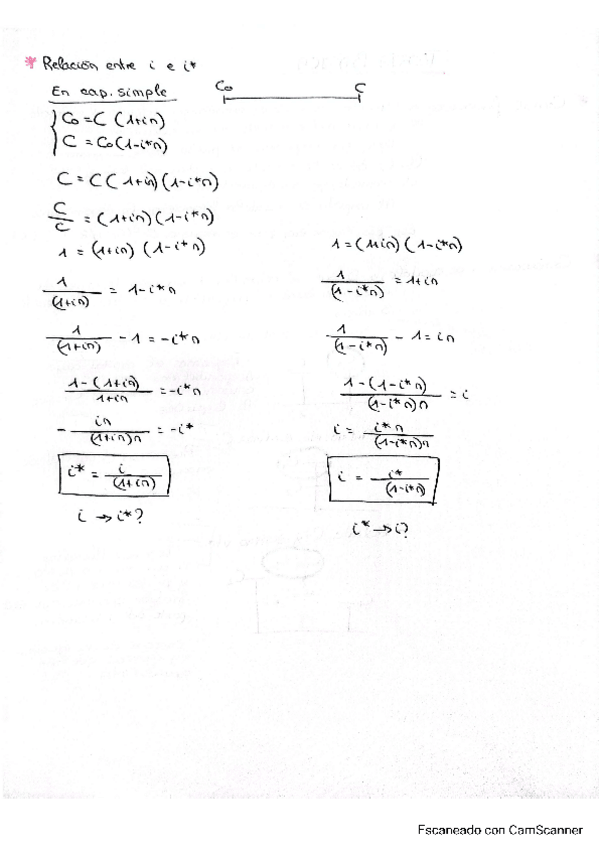 * Relación entre i e i*
En cap. simple
Co C
Co = C (1+in)
C = Co (1-i*n)
C = C (1+in) (1-i*n)
C/C = (1+in) (1-i*n)
1 = (1+in) (1-i*n)
1/(1+in) = 1-i*n
1/(1+in) - 1 = -i*n
1-(1+in)/1+in = -i*n
- in/(1+in)n = -i*
i* = i/(1+in)
i → i*?
1 = (1+in) (1-i*n)
1/(1-i*n) = 1+in
1/(1-i*n) - 1 = in
1-(1-i*n)/(1-i*n)n = i
i = i*n/(1-i*n)n
i = i*/(1-i*n)
i* → i?
Escaneado con CamScanner